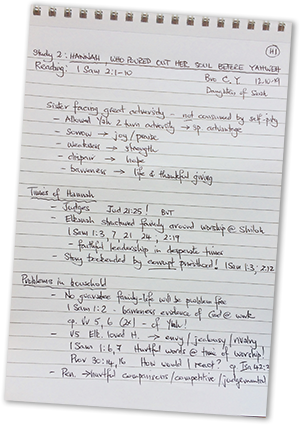 H1
Study 2: HANNAH, WHO POURED OUT HER SOUL BEFORE YAHWEH
Reading: 1 Sam 2:1-10 Bro C.Y. 12-10-19
Daughters of Sarah
Sister facing great adversity - not consumed by self-pity
- Allowed Yah 2 turn adversity → sp. advantage
- sorrow → joy/praise
- weakness → strength
- despair → hope
- barrenness → life & thankful giving
Times of Hannah
- Judges Jud 21:25! BUT
- Elkanah structured family around worship @ Shiloh
1 Sam 1:3, 7, 21, 24, 2:19
- faithful leadership in desperate times
- Story bookended by corrupt priesthood! 1 Sam 1:3, 2:12
Problems in household
- No guarantee family-life will be problem free
1 Sam 1:2 - barrenness evidence of God @ work
eg. vv 5, 6 (2x) - cf Yah!
- v5 Elk. loved H. → envy/jealousy/rivalry
1 Sam 1:6,7 Hurtful words @ time of worship!
Prov 30:14, 16 How would I react? eg. Isa 42:2
- Pen. → hurtful comparisons/competitive/judgemental